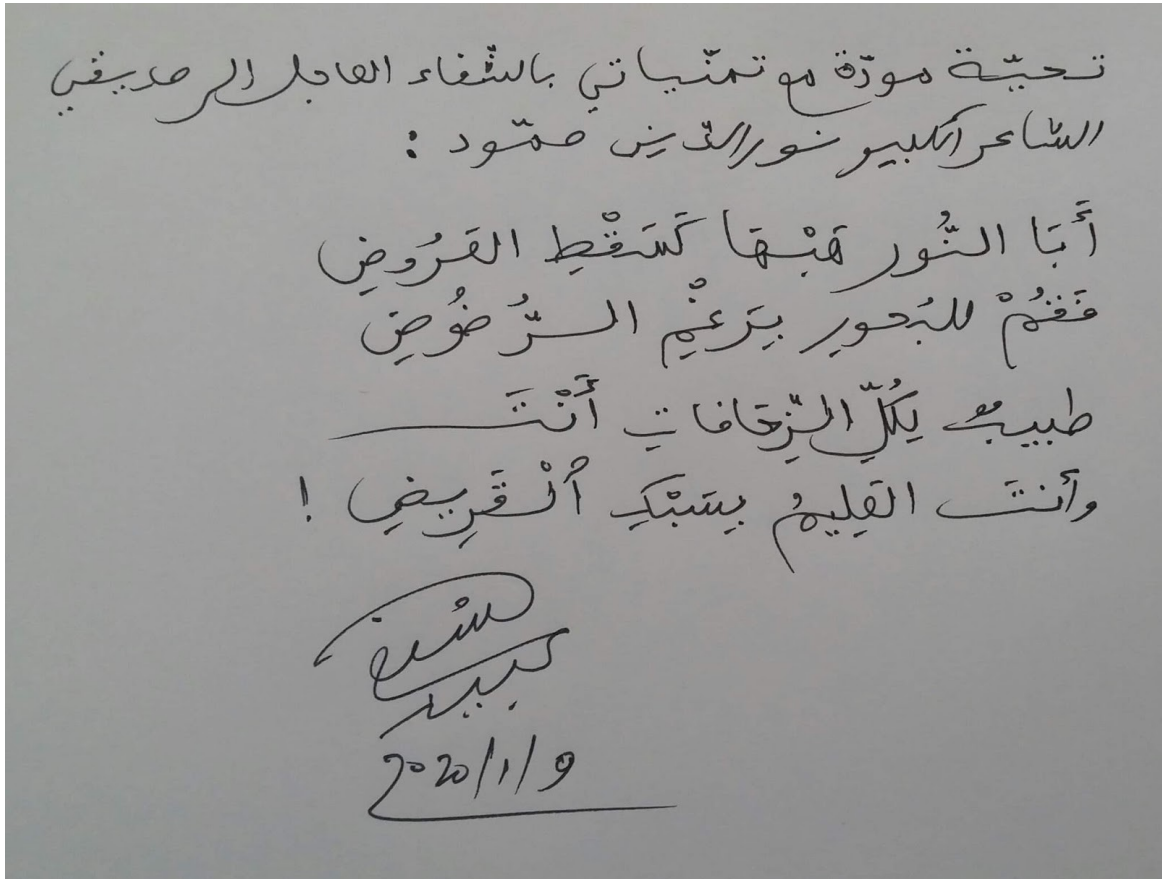 تحيّة مودّة مع تمنّياتي بالشّفاء العاجل إلى صديقي
الشاعر الكبير نور الدّين صمّود :
أَبَا النُّور هَبْهَا كَسَقْطِ العَرُوضِ
فَقُمْ للبُحورِ بِرَغْمِ الرُّضُوضِ
طبيبٌ لِكُلِّ الزِّحَافاتِ أَنْتَ
وأنتَ العَلِيمُ بِسَبْكِ ٱلْقَرِيضِ !
9/1/2020